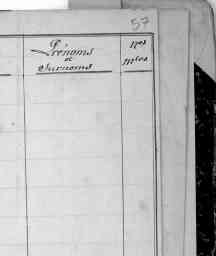 57
Prénoms
et
Surnoms
Nos
mles